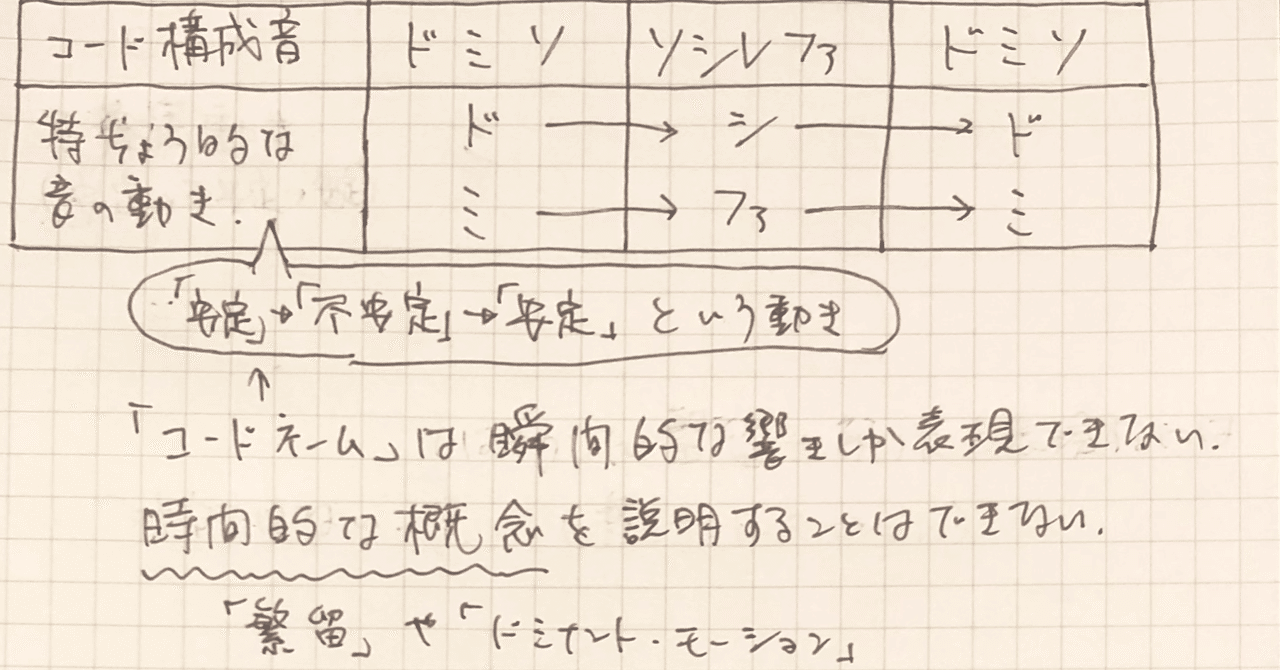 コード構成音 ドミソ ソシレファ ドミソ
特ちょう的な ド → シ → ド
音の動き. ミ → ファ → ミ
「安定」→「不安定」→「安定」という動き
↑
「コードネーム」は瞬間的な響きしか表現できない.
時間的な概念を説明することはできない.
「繋留」や「ドミナント・モーション」